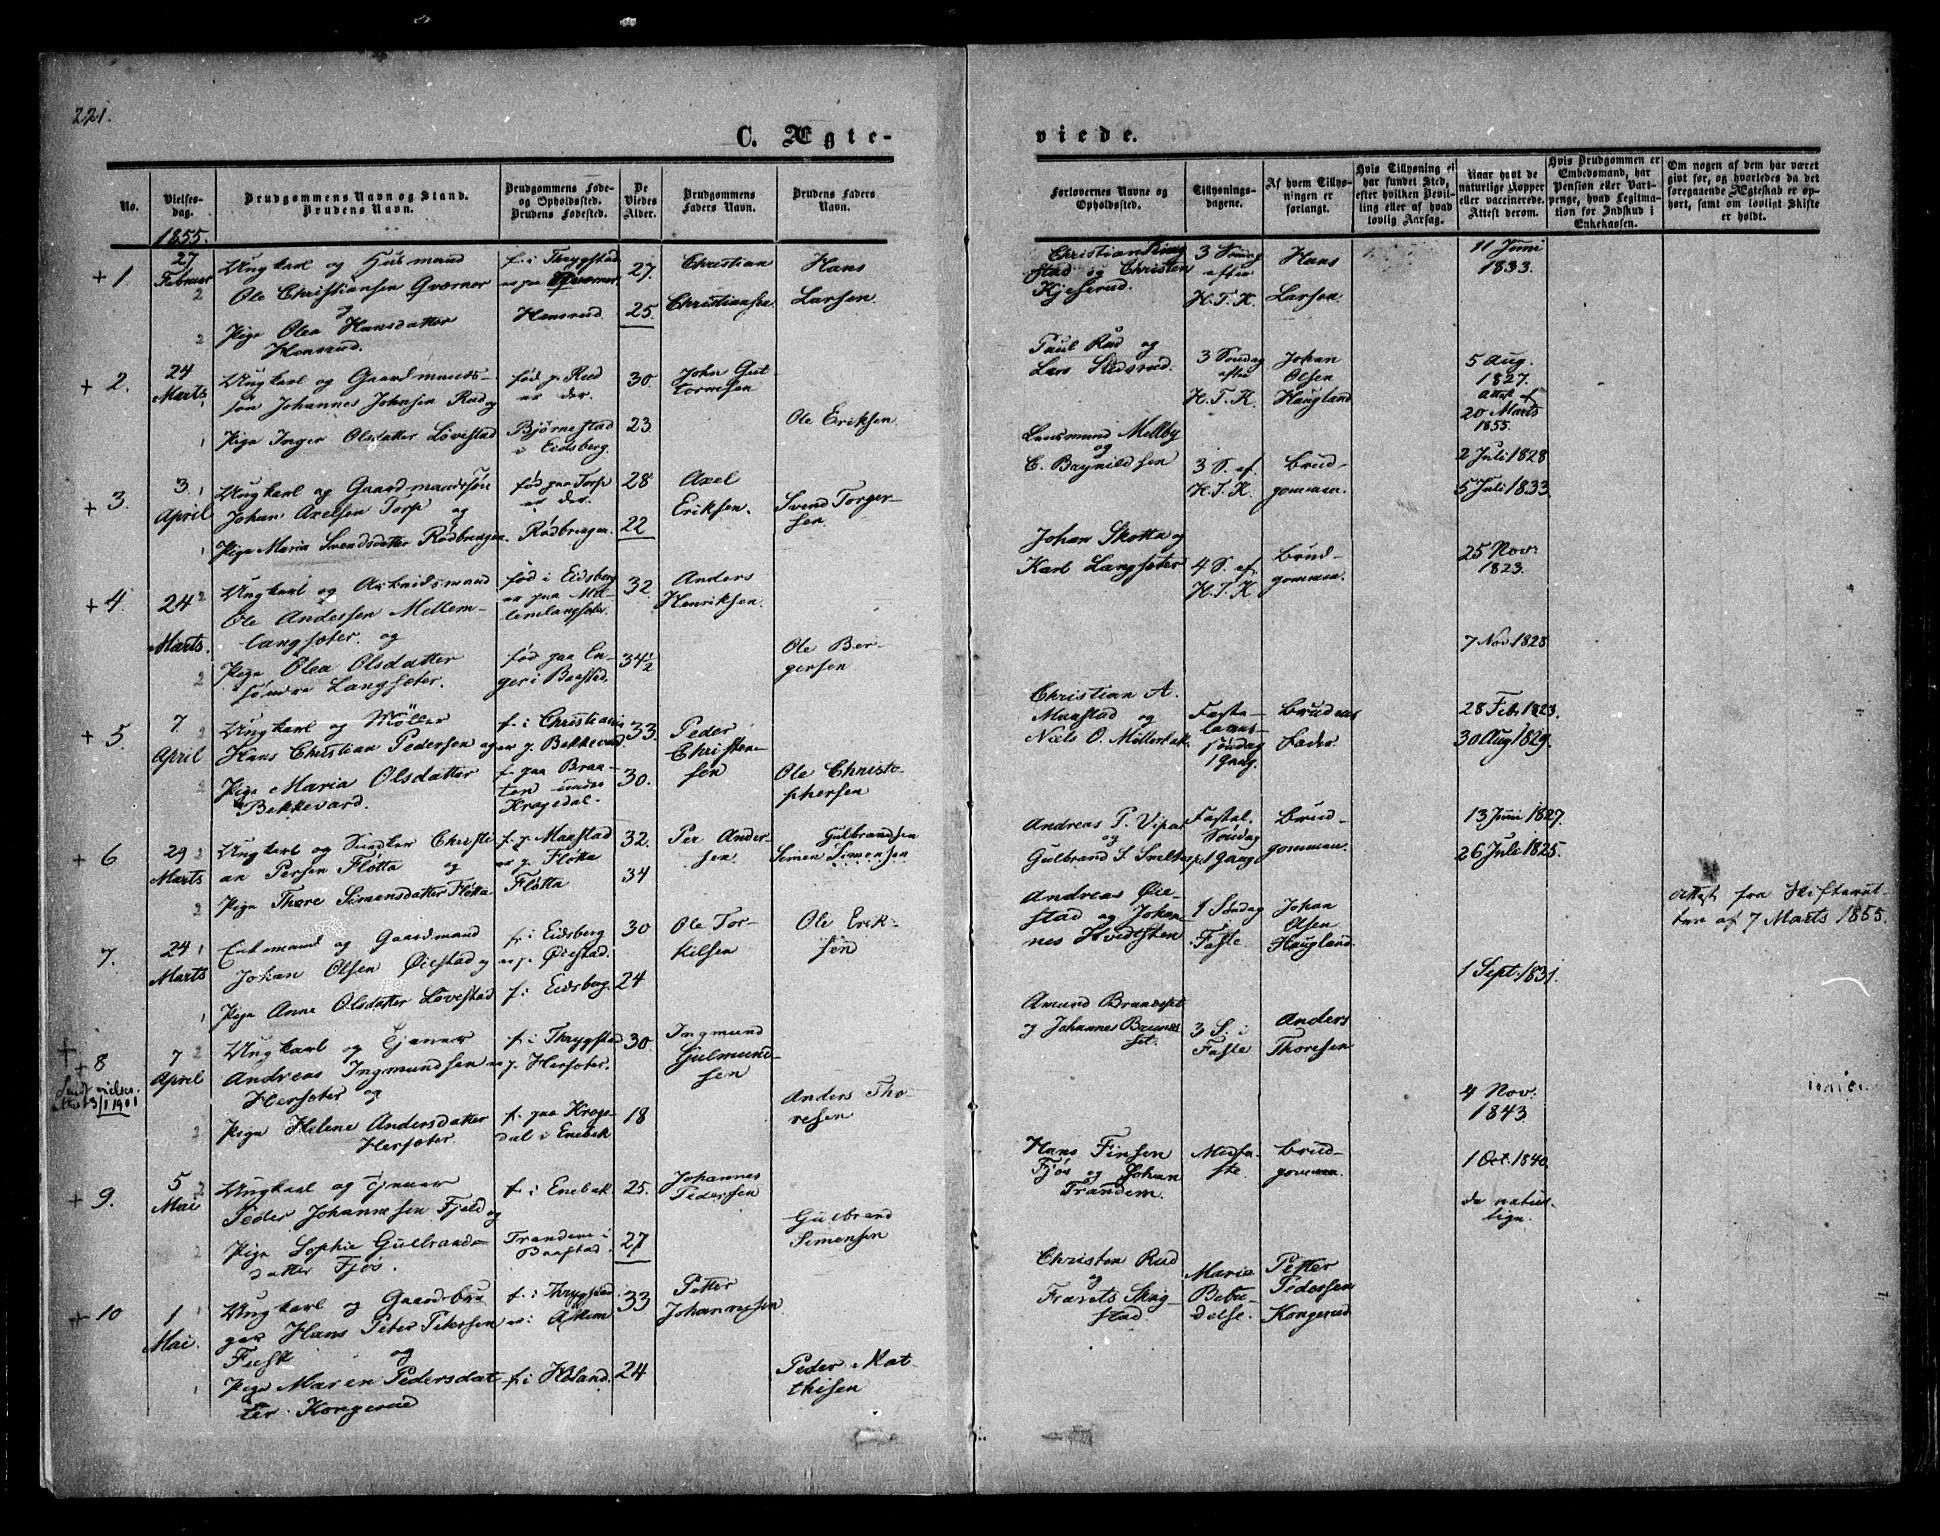 221.
C. Ægte-
viede.
No.
Vielses-
dag.
Brudgommens Navn og Stand.
Brudens Navn.
Brudgommens Føde-
og Opholdssted.
Brudens Fødested.
De
Viedes
Alder.
Brudgommens
Faders Navn.
Brudens Faders
Navn.
Forlovernes Navne og
Opholdssted.
Tillysnings-
dagene.
Af hvem Tillys-
ningen er
forlangt.
Hvis Tillysning ei
har fundet Sted,
efter hvilken Bevil-
ling eller af hvad
lovlig Aarsag.
Naar havt de
naturlige Kopper
eller vaccinerede.
Attest derom.
Hvis Brudgommen er
Embedsmand, har
Pension eller Vart-
penge, hvad Legitima-
tion for Indskud i
Enkekassen.
Om nogen af dem har været
gift før, og hvorledes da det
foregaaende Ægteskab er op-
hørt, samt om lovligt Skifte
er holdt.
1855.
+ 1.
27
Februar
Ungkarl og Husmand
Ole Christiansen Qværner
og
Pige Olea Hansdatter
Hansrud.
f. i Thrygstad
er paa Qværner
Hansrud.
27.
25
Christian
Christiansen.
Hans
Larsen.
Christian
stad og Christen
Kjeserud.
3 Søndag
efter
H. T. K.
Hans
Larsen.
11 Juni
1833.
+ 2.
24
Marts
Ungkarl og Gaardmands-
søn Johannes Johnsen Rud og
Pige Inger Olsdatter Løvestad
fød p. Rud
er der.
Bjørnestad
i Eidsberg.
30
23.
John Gut-
tormsen
Ole Eriksen
Paul Rud og
Lars Slidsrud.
3 Søndag
efter
H. T. K.
Johan
Olsen
Haugland
5 Aug.
1827.
Attest af
20 Marts
1855.
+ 3.
3.
April
Ungkarl og Gaardmandssøn
Johan Axelsen Torp og
Pige Maria Svendsdatter Rødbringen.
fød paa Torp
er der.
Rødbringen.
28
22
Axel
Eriksen.
Svend Torger-
sen.
Lensmand Mellby
og
C. Brynildsen
3 S. ef.
H. T. K.
Brud-
gommen.
2 Juli 1828
5 Juli 1833
+ 4
24
Marts.
Ungkarl og Arbeidsmand
Ole Andersen Mellem-
langsæter. og
Pige Olea Olsdatter
søndre Langsæter.
fød i Eidsberg
er paa Mel-
lemlangsæter.
fød paa En-
ger i Baastad.
32.
34½
Anders
Henriksen.
Ole Ber-
gersen
Johan Skotta og
Karl Langsæter
4 S. ef.
H. T. K
Brud-
gommen.
25 Nov.
1823.
7 Nov. 1828
+ 5.
7
April
Ungkarl og Møller
Hans Christian Pedersen og
Pige Maria Olsdatter
Bekkevard.
f. i Christiania
er p. Bekkevard
f. paa Braa-
ten under
Kragedal.
33.
30.
Peder
Christen-
sen
Ole Christo-
phersen
Christian A.
Maastad og
Niels O. Møllerbak.
Faste-
lavns-
søndag
1 Gang.
Brudens
Fader.
28 Feb. 1823.
30 Aug 1829.
+ 6
29
Marts
Ungkarl og Snedker Christi-
an Persen Fløtta og
Pige Thore Simensdatter Fløtta
f. p. Maastad
er p. Fløtta
Fløtta
32.
34
Per Ander-
sen
Gulbrandsen
Simen Simensen
Andreas P. Vipas
og
Gulbrand S.
Fastel.
Søndag
1 Gang
Brud-
gommen.
13 Juni 1827.
26 Juli 1825.
7.
24
Marts
Enkemand og Gaardmand
Johan Olsen Øiestad og
Pige Anne Olsdatter Løvestad
f. i Eidsberg
er p. Øiestad.
f. i Eidsberg.
30
24
Ole Tor-
kilsen
Ole Erik-
sen
Andreas Øie-
stad og Johan-
nes Hvidsten
1 Søndag
i Faste.
Johan
Olsen
Haugland.
1 Sept. 1831.
Attest fra Skifteret-
ten af 7 Marts 1855.
+
+ 8
Sendt vielses-
attest 3/1 1901
7
April
Ungkarl og Tjener
Andreas Ingmundsen
Hersæter og
Pige Helene Andersdatter
Hersæter.
f. i Thrygstad
er p. Hersæter.
f. paa Krage-
dal i Enebak
30.
18
Ingmund
Gulmund-
sen
Anders Tho-
resen
Amund Brandset
og Johannes Brand-
set.
3 S. i
Faste
Anders
Thoresen
4 Nov.
1843
+ 9.
5
Mai
Ungkarl og Tjener
Peder Johannesen Fjeld og
Pige Sophie Gulbrands-
datter Fjøs.
f. i Enebak.
Trandem i
Baastad.
25.
27
Johannes
Pedersen
Gulbrand
Simensen
Hans Finsen
Fjøs og Johan
Trandem.
Midfa-
ste
Brud-
gommen.
1 Oct. 1840.
de natur-
lige.
+ 10
1
Mai.
Ungkarl og Gaardbru-
ger Hans Peter Petersen
Fusk og
Pige Maren Pedersdat-
ter Kongerud
f. i Thrygstad
er i Askim
f. i Høland.
33
24
Petter
Johannesen.
Peder Mat-
thisen
Christen Rud
og
Frants Skog-
stad
Marie
Bebu-
delse.
Petter
Pedersen
Kongerud